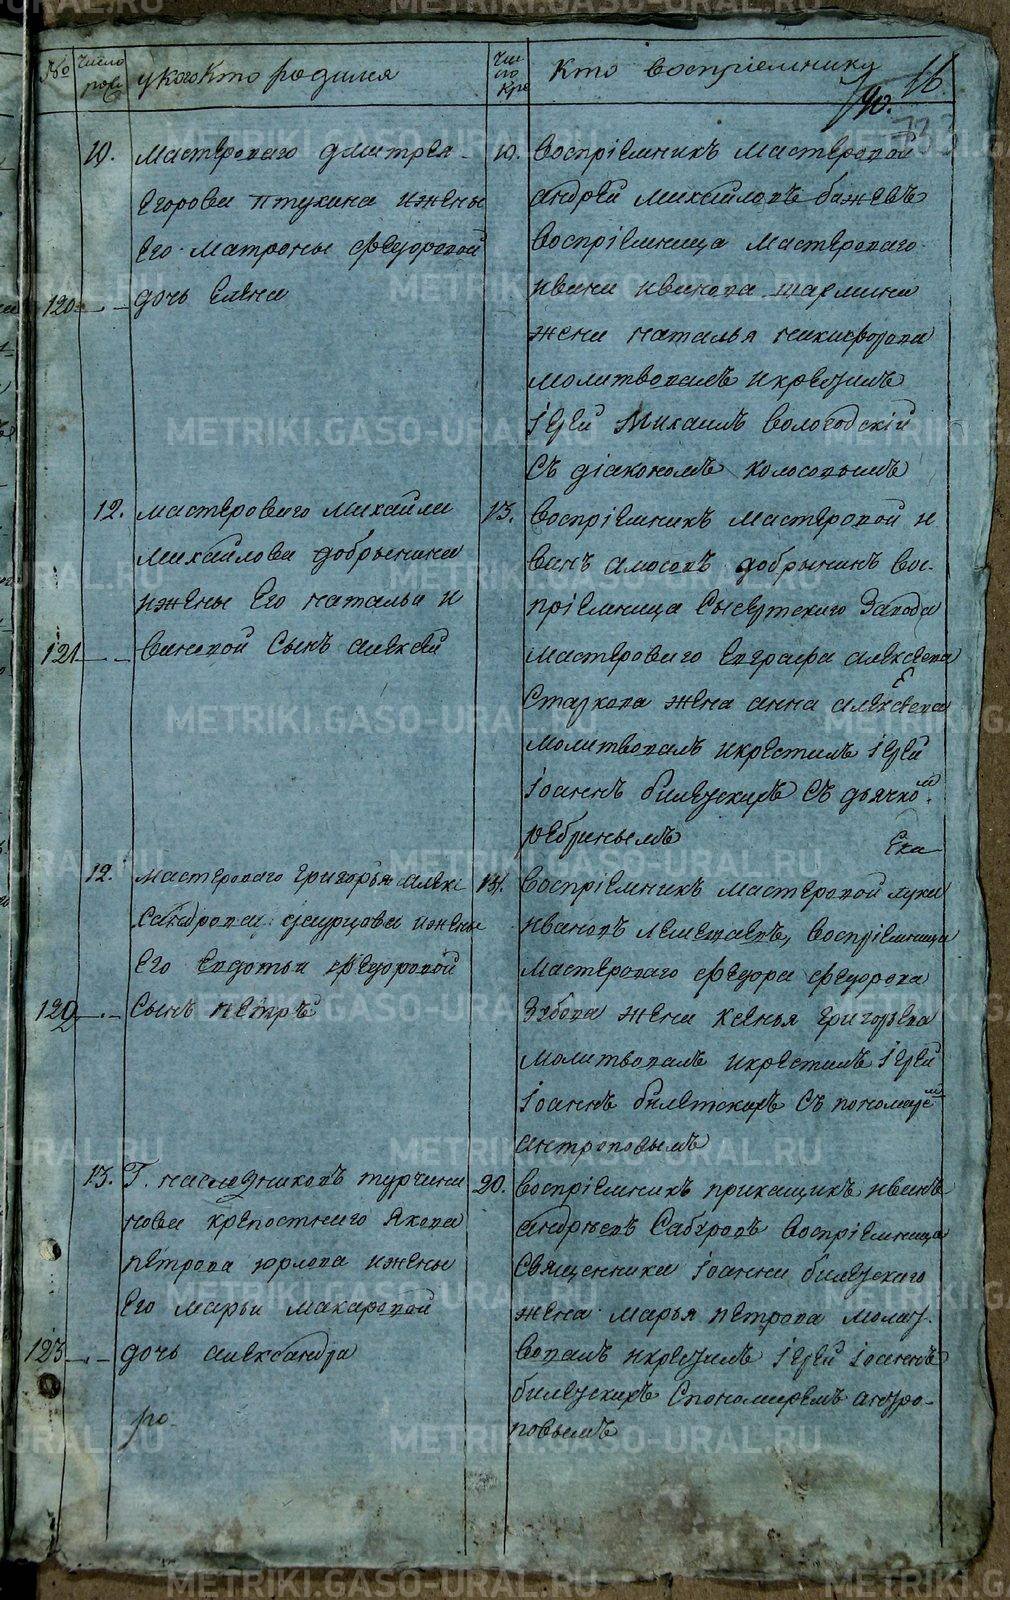 № Число рож у кого кто родился Чис ло кре кто воспрiемники
16
10. Мастероваго дмитрея
Егорова птухина ижены
Его матроны федоровой
120 дочь Елена
10. воспрiемникъ мастеровой
андрей михайловъ бажевъ
воспрiемница мастероваго
ивана иванова шармина
жена наталья никифорова
молитвовалъ икрестилъ
iерей михаилъ вологодскiй
съ дiакономъ колосовымъ
12. мастероваго михайла
михайлова добрынина
ижены его натальи и
121 вановой сынъ алексей
13. воспрiемникъ мастеровой и
ванъ амосовъ добрынинъ вос-
прiемница сысертскаго завода
мастероваго евграфа алексеева
старкова жена анна алексеева
молитвовалъ икрестилъ iерей
iоаннъ билетскихъ съ дьячком
ребринымъ
Ека
12. мастероваго григорья алекс
сандрова ижены
его евдотьи федоровой
122 сынъ петръ
14. воспрiемникъ мастеровой лука
ивановъ воспрiемница
мастероваго федора федорова
жена ксенья григорьева
молитвовалъ икрестилъ iерей
iоаннъ билетскихъ съ пономарем
антроповымъ
13. Г. наследниковъ турчани
нова крепостнаго якова
петрова юрлова ижены
его марьи макаровой
123 дочь александра
20. воспрiемникъ прикащикъ иванъ
андреевъ сабуровъ воспрiемница
священника iоанна билетскаго
жена марья петрова молит
вовалъ икрестилъ iерей iоаннъ
билетскихъ спономаремъ антро-
повымъ
ро-
METRIKI.GASO-URAL.RU